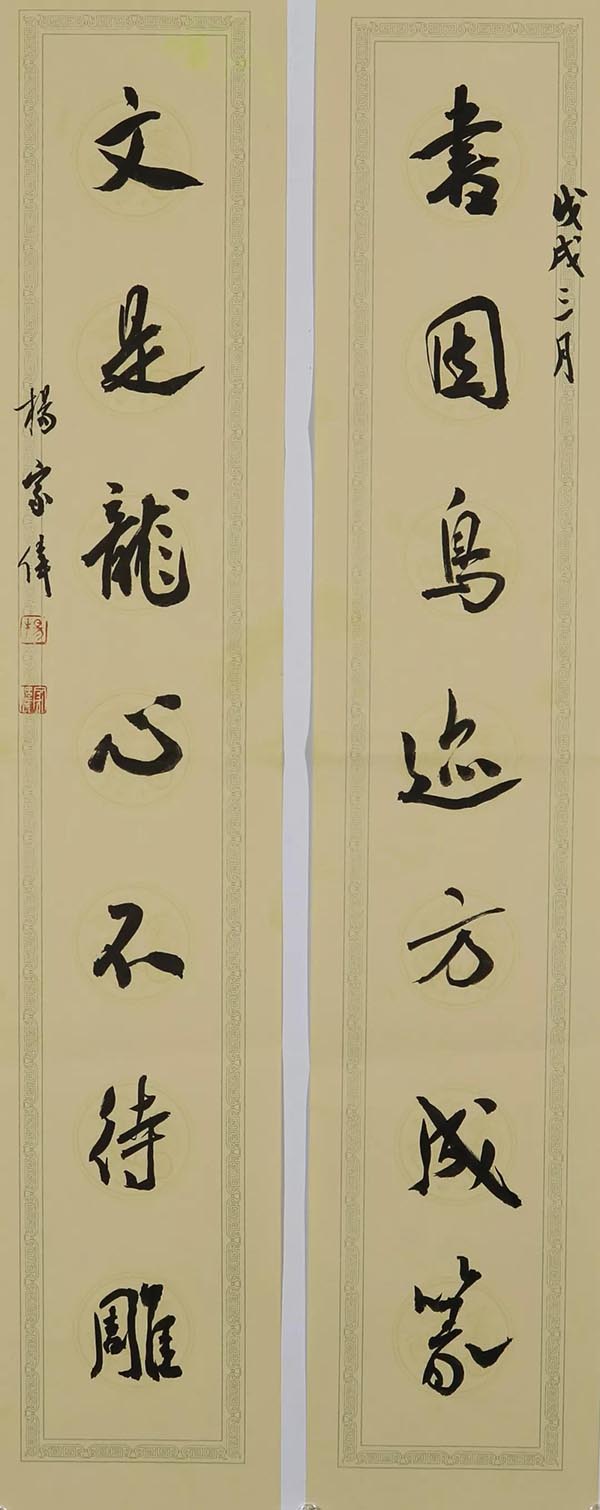 戊戌三月
書因鳥迹方成篆
文是龍心不待雕
楊家儀